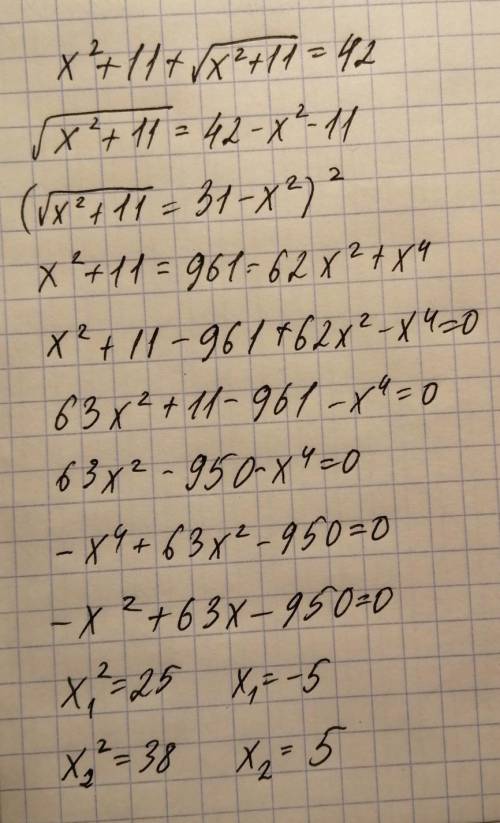 x²+11+√(x²+11)=42
√(x²+11)=42-x²-11
(√(x²+11)=31-x²)²
x²+11=961-62x²+x⁴
x²+11-961+62x²-x⁴=0
63x²+11-961-x⁴=0
63x²-950-x⁴=0
-x⁴+63x²-950=0
-x²+63x-950=0
x₁²=25 x₁=-5
x₂²=38 x₂=5